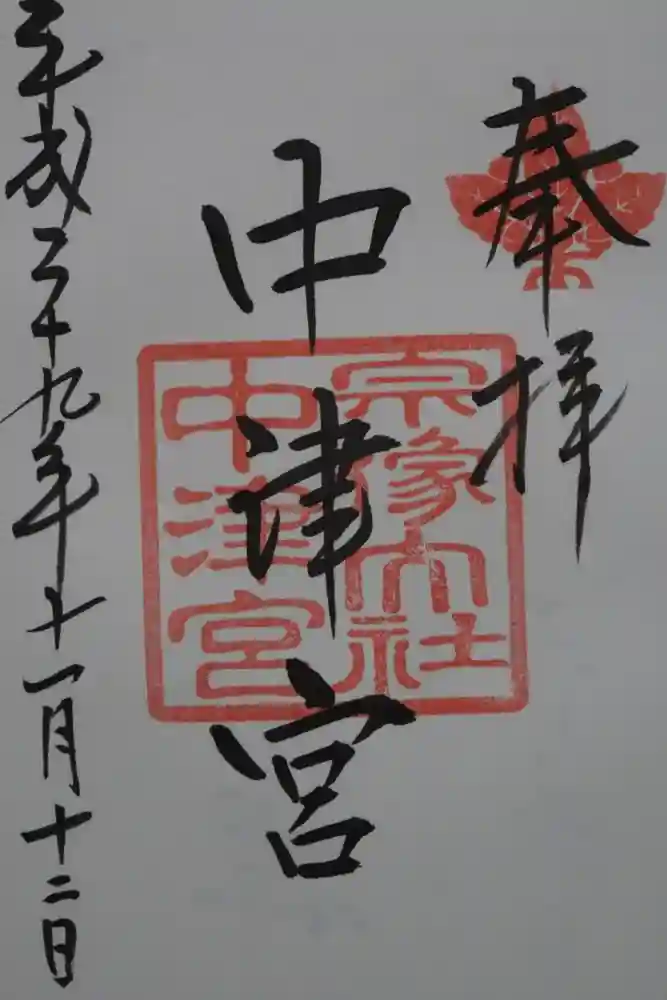 奉拝
宗像大社
中津宮
中津宮
平成二十九年十一月十二日